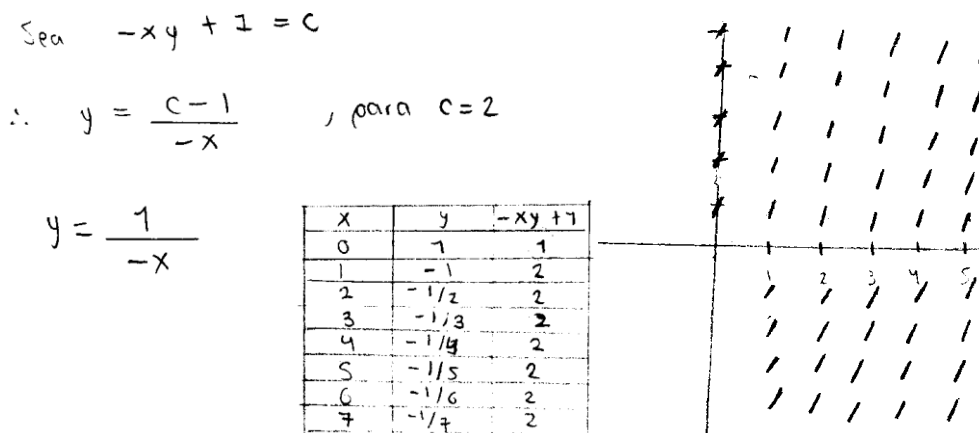 Sea -xy + 1 = c
∴ y = c - 1 / -x , para c = 2
y = 1 / -x
x y -xy + 1
0 1 1
1 -1 2
2 -1/2 2
3 -1/3 2
4 -1/4 2
5 -1/5 2
6 -1/6 2
7 -1/7 2
1 2 3 4 5